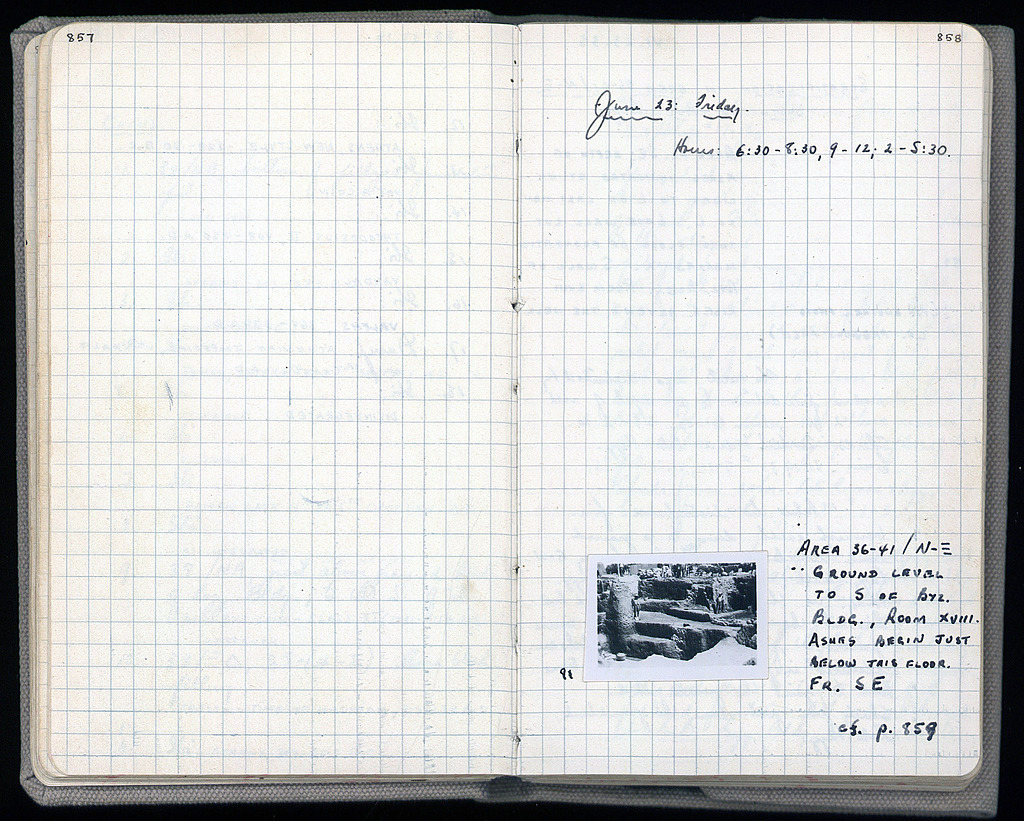 857
858
June 23: Friday.
Hours: 6:30-8:30, 9-12; 2-5:30.
AREA 36-41 / N-Ξ
GROUND LEVEL
TO S OF BYZ.
BLDG., ROOM XVIII.
ASHES BEGIN JUST
BELOW THIS FLOOR.
FR. SE
91
cf. p. 859